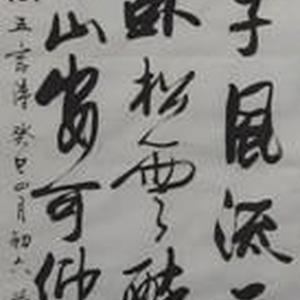 子風流
卧松雲醉
山安可仰
五言詩癸巳四月初六